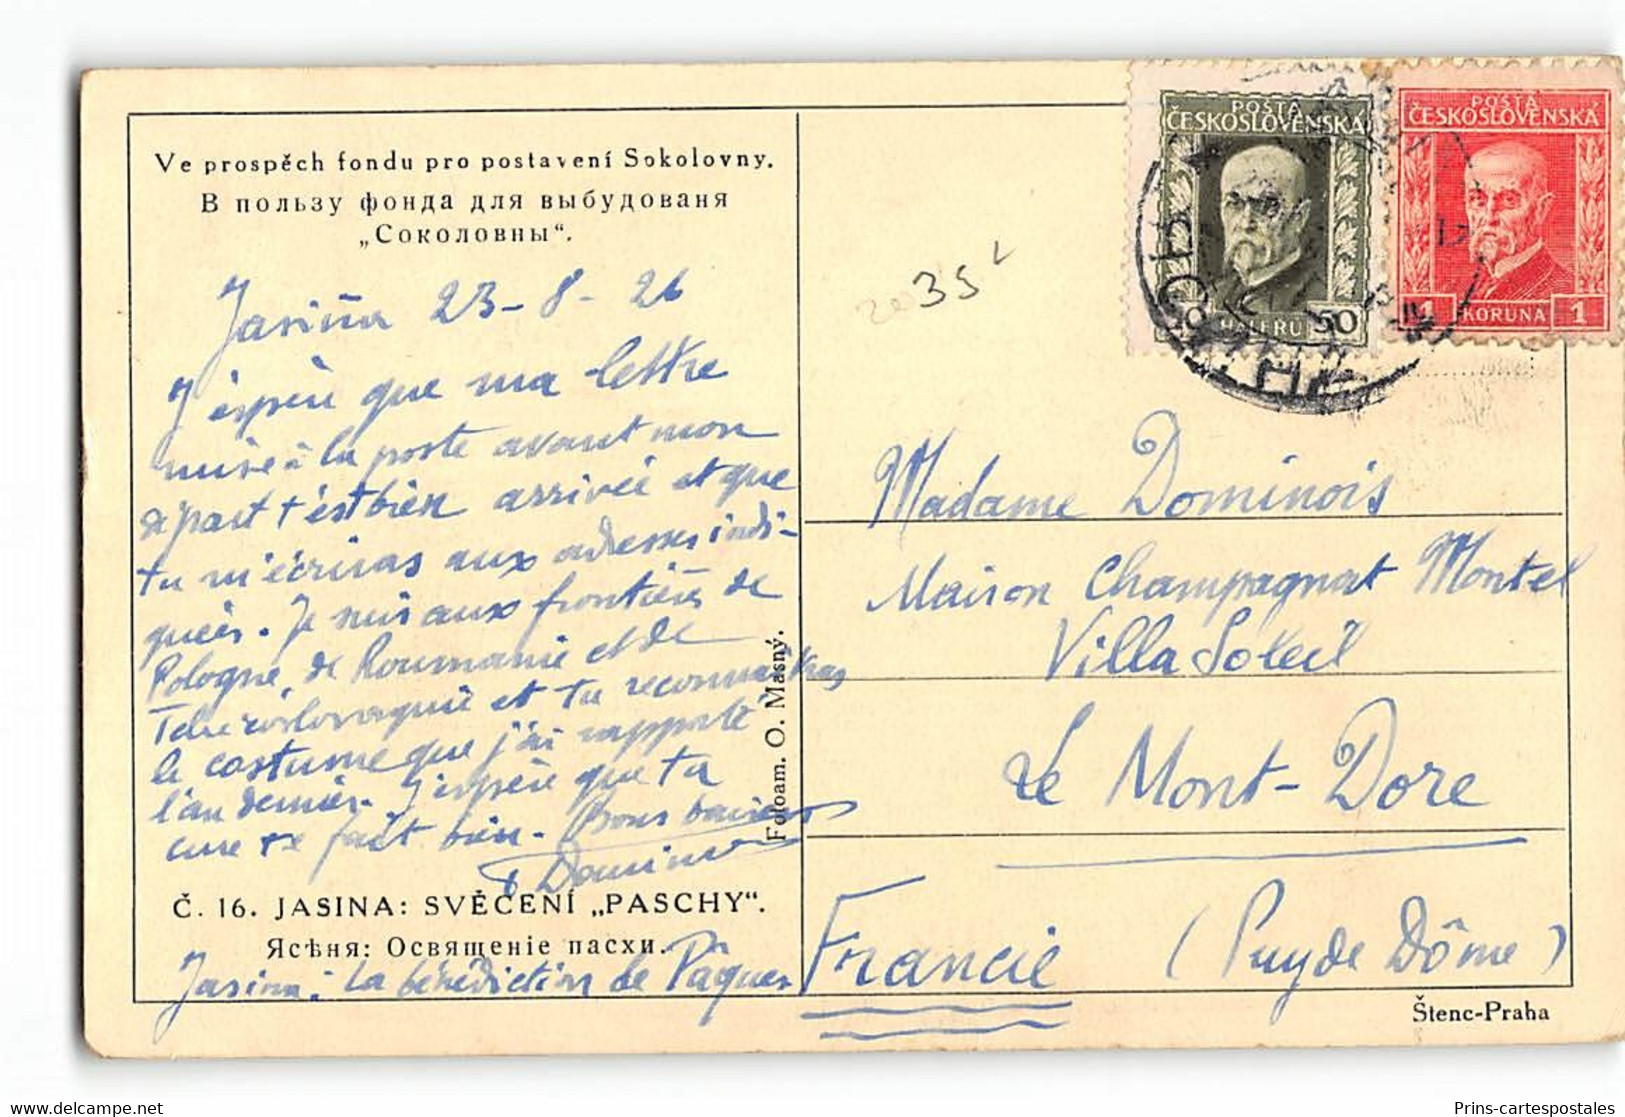 Ve prospěch fondu pro postavení Sokolovny.
В пользу фонда для выбудованя
„Соколовны“.
Jasiňa 23-8-26
J'espère que ma lettre
mise à la poste avant mon
départ t'est bien arrivée et que
tu m'écriras aux adresses indi-
quées. Je suis aux frontières de
Pologne, de Roumanie et de
Tchécoslovaquie et tu reconnaîtras
le costume que j'ai rapporté
l'an dernier. J'espère que ta
cure se fait bien. Bons baisers
Dominois
Č. 16. JASINA: SVĚCENÍ „PASCHY“.
Ясѣня: Освященіе пасхи.
Jasina: La bénédiction de Pâques
Fotoam. O. Masný.
35
POŠTA
ČESKOSLOVENSKÁ
HALÉRŮ 50
POŠTA
ČESKOSLOVENSKÁ
1 KORUNA 1
Madame Dominois
Maison Champagnat Montel
Villa Soleil
Le Mont-Dore
France (Puy de Dôme)
Štenc-Praha
www.delcampe.net
Prins-cartespostales